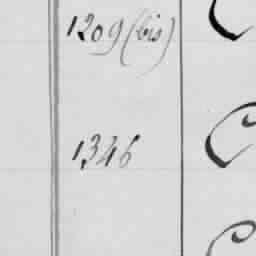 1209 (bis)
1346